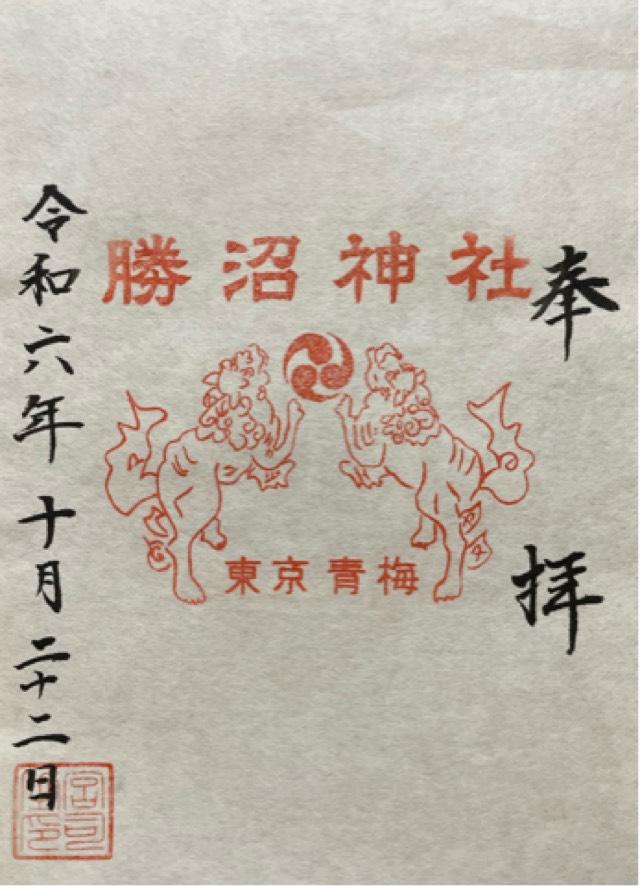 奉拝
勝沼神社
東京青梅
令和六年十月二十二日
宮司之印